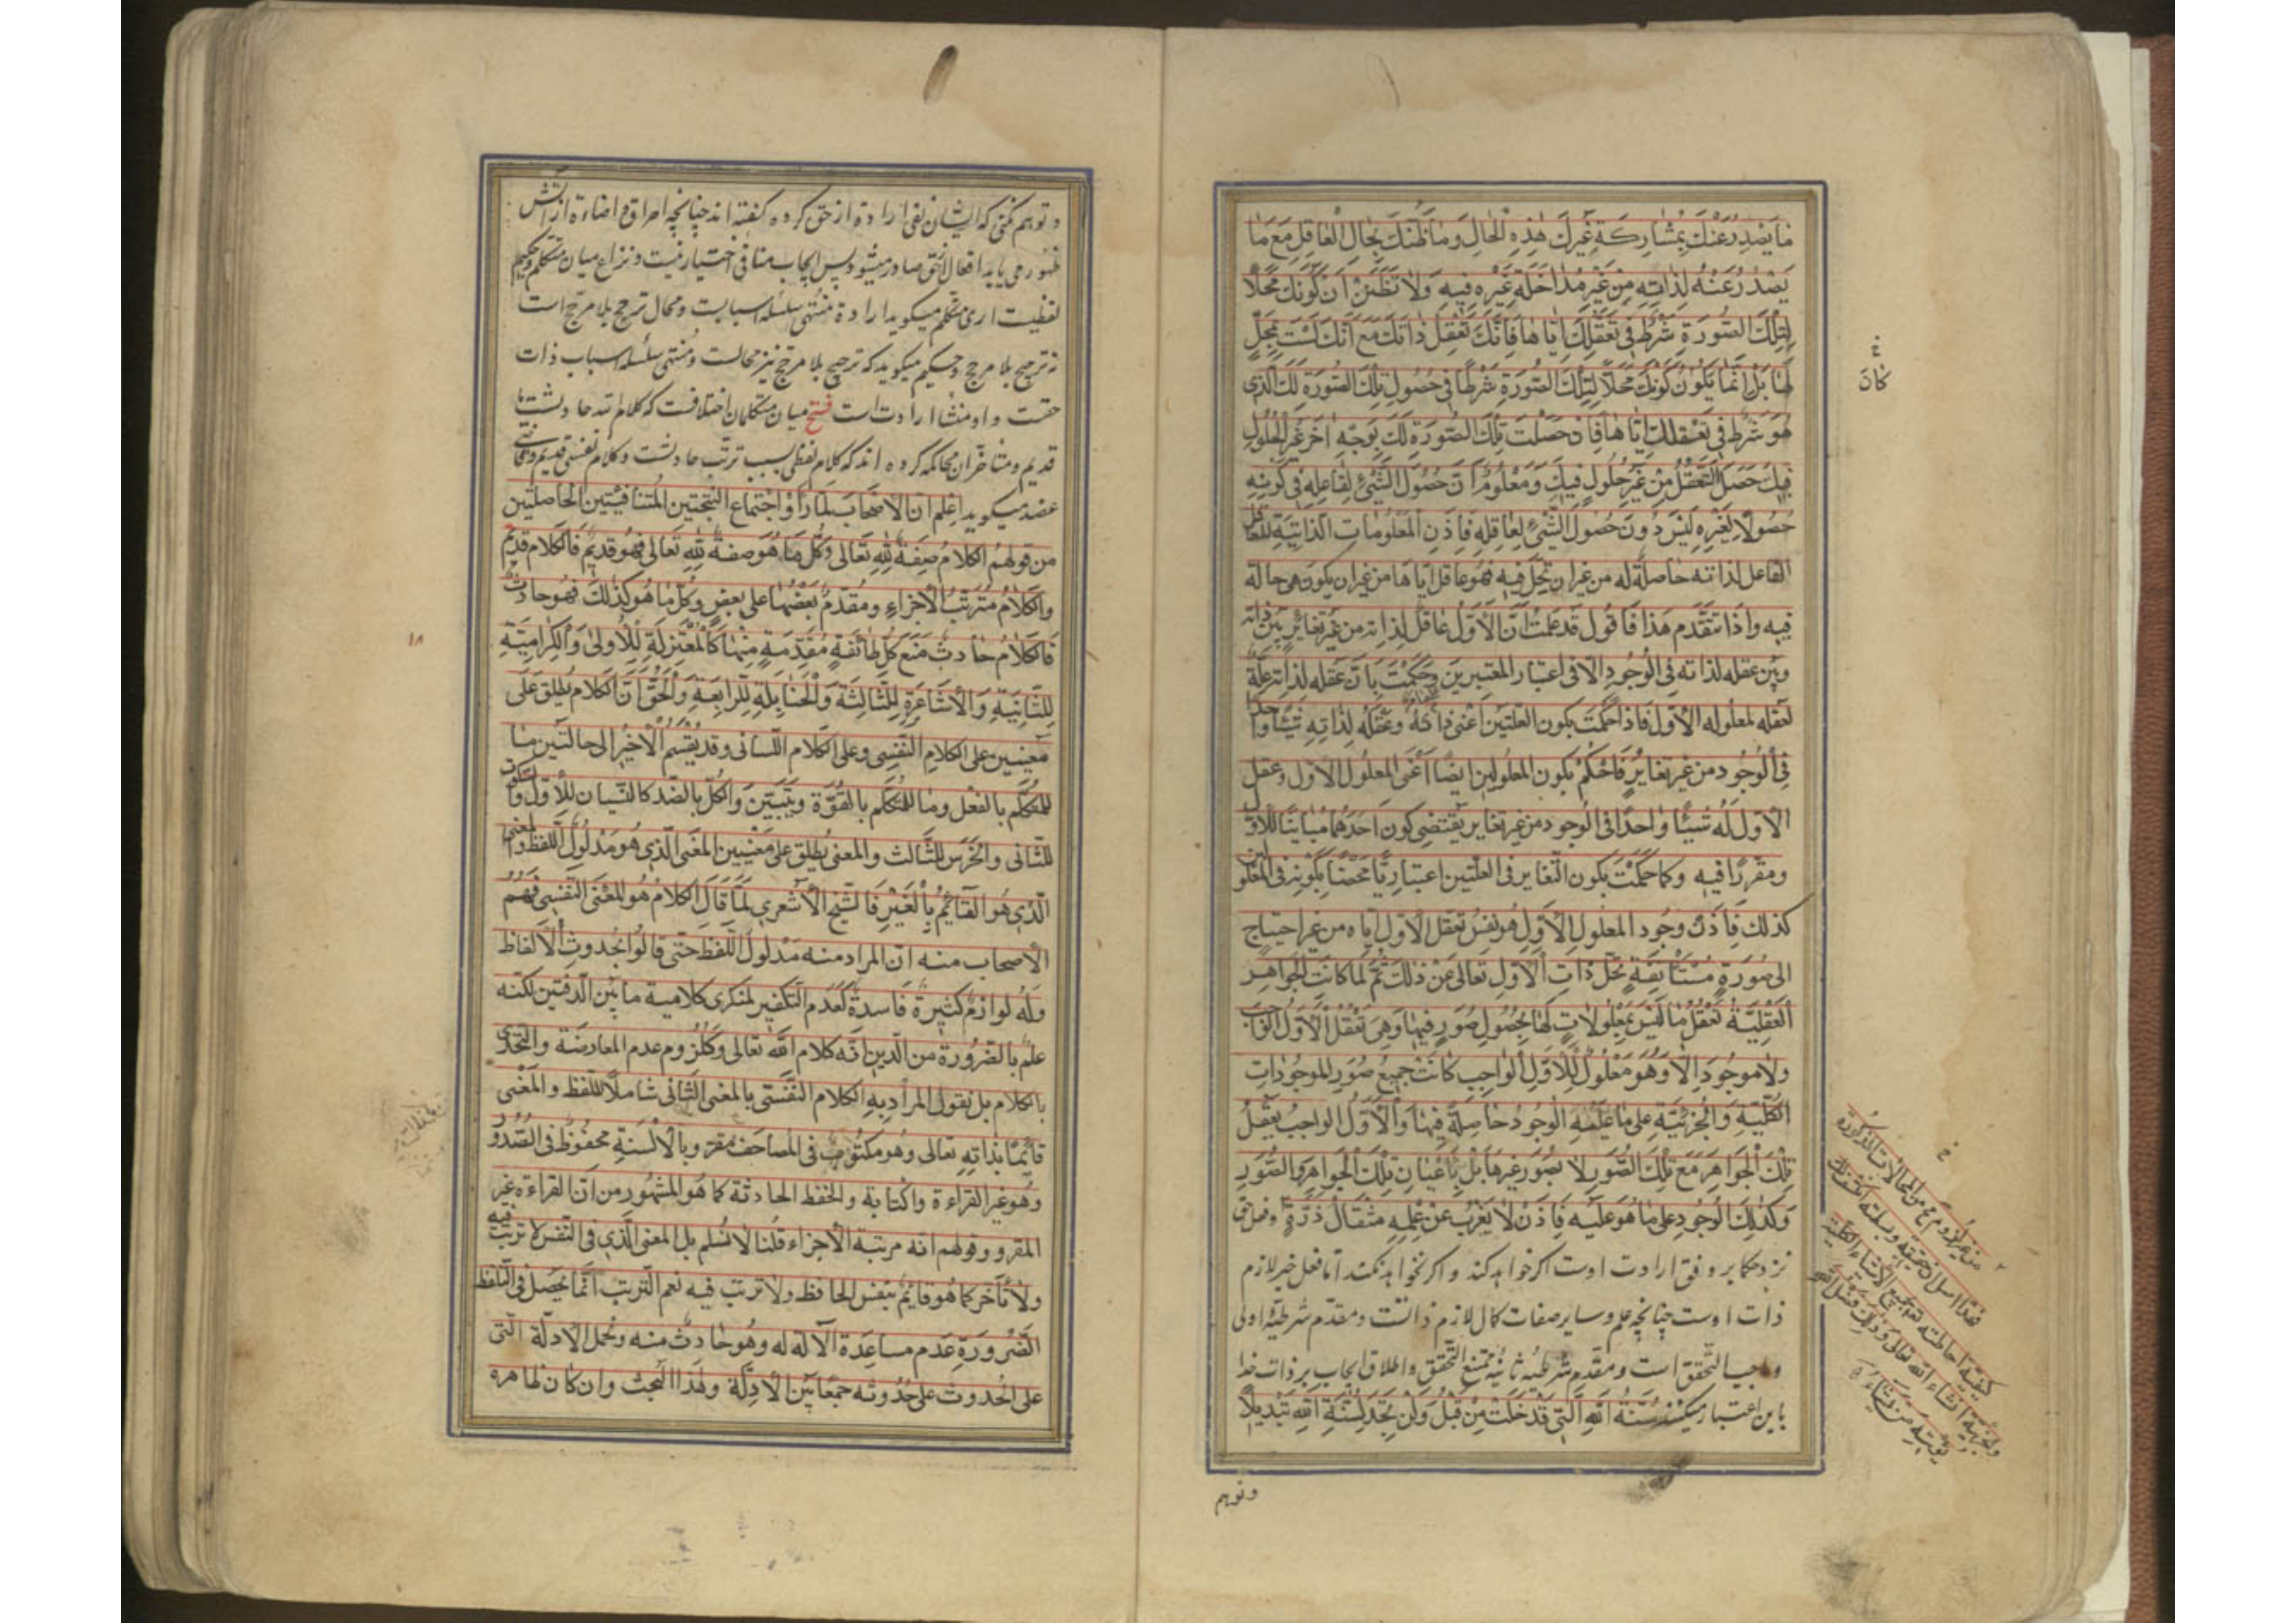 ما يصدر عنك بمشاركة غيرك هذه الحال وما ظنك بحال العاقل مع ما
يصدر عنه لذاته من غير مداخلة غيره فيه ولا تظنن ان كونك محلا
لتلك الصورة شرط في تعقلك اياها فانك تعقل ذاتك مع انك لست بمحل
لها بل انما يكون كونك محلا لتلك الصورة شرطا في حصول تلك الصورة لك الذي
هو شرط في تعقلك اياها فان حصلت تلك الصورة لك بوجه اخر غير الحلول
فيك حصل التعقل من غير حلول فيك ومعلوم ان حصول الشيء لفاعله في كونه
حصولا لغيره ليس دون حصول الشيء لعاقله فاذن المعلومات الذاتية للعاقل
الفاعل لذاته حاصلة له من غير ان تحل فيه فهو عاقل اياها من غير ان يكون هي حالة
فيه واذا تقدم هذا فاقول قد علمت ان الاول عاقل لذاته من غير تغاير بين ذاته
وبين عقله لذاته في الوجود الا في اعتبار المعتبرين وحكمت بان عقله لذاته علة
لعقله لمعلوله الاول فاذا حكمت بكون العلتين اعني ذاته وعقله لذاته شيئا واحدا
في الوجود من غير تغاير فاحكم بكون المعلولين ايضا اعني المعلول الاول وعقل
الاول له شيئا واحدا في الوجود من غير تغاير يقتضي كون احدهما مباينا للاول
ومقررا فيه وكما حكمت بكون التغاير في العلتين اعتباريا محضا بكونه في المعلولين
كذلك فاذن وجود المعلول الاول هو نفس تعقل الاول اياه من غير احتياج
الى صورة مستأنفة تحل ذات الاول تعالى عن ذلك ثم لما كانت الجواهر
العقلية تعقل ما ليس بمعلولات لها بحصول صور فيها وهي تعقل الاول الواجب
ولا موجود الا وهو معلول للاول الواجب كانت جميع صور الموجودات
الكلية والجزئية على ما عليه الوجود حاصلة فيها والاول الواجب يعقل
تلك الجواهر مع تلك الصور لا بصور غيرها بل باعيان تلك الجواهر والصور
وكذلك الوجود على ما هو عليه فاذن لا يعزب عن علمه مثقال ذرة
نزد حكما بر وفق ارادت اوست اكر خواهد كند و اكر نخواهد نكند اما فعل خير لازم
ذات اوست چنانچه علم و ساير صفات كمال لازم ذاتست و مقدم شرطيهٔ اولى
واجب التحقق است و مقدم شرطيه ثانيه ممتنع التحقق و اطلاق ايجاب بر ذات خدا
باين اعتبار ميكنند سنة الله التي قد خلت من قبل ولن تجد لسنة الله تبديلا
وتوهم
كان
و توهم نكنى كه ايشان نفى اراده از حق كرده كفته اند چنانچه احراق و اضاءة از آتش
ظهور مى يابد افعال از حق صادر ميشود پس ايجاب منافى اختيار نيست و نزاع ميان متكلم و حكيم
لفظيست ارى متكلم ميكويد ارادة منتهى سلسله اسبابست و محال ترجح بلا مرجح است
نه ترجيح بلا مرجح و حكيم ميكويد كه ترجيح بلا مرجح نيز محالست و منتهى سلسله اسباب ذات
حقست و او منشا ارادت است فتح ميان متكلمان اختلافست كه كلام الله حادثست يا
قديم و متاخران محاكمه كرده اند كه كلام لفظى بسبب ترتب حادثست و كلام نفسى قديم و قاضى
عضد ميكويد اعلم ان الاصحاب لما رأوا اجتماع النتيجتين المتنافيتين الحاصلتين
من قولهم الكلام صفة لله تعالى وكل ما هو صفة لله تعالى فهو قديم فالكلام قديم
والكلام مترتب الاجزاء ومقدم بعضها على بعض وكل ما هو كذلك فهو حادث
فالكلام حادث منع كل طائفة مقدمة منها كالمعتزلة للاولى والكرامية
للثانية والاشاعرة للثالثة والحنابلة للرابعة والحق ان الكلام يطلق على
معنيين على الكلام النفسي وعلى الكلام اللساني وقد يقسم الاخير الى حالتين ما
للمتكلم بالفعل وما للمتكلم بالقوة ويتبين والكل بالضد كالنسيان للاول والسكوت
للثاني والخرس للثالث والمعنى يطلق على معنيين المعنى الذي هو مدلول اللفظ والمعنى
الذي هو القائم بالغير فالشيخ الاشعري لما قال الكلام هو المعنى النفسي فهم
الاصحاب منه ان المراد منه مدلول اللفظ حتى قالوا بحدوث الالفاظ
وله لوازم كثيرة فاسدة كعدم التكفير لمنكري كلامية ما بين الدفتين لكنه
علم بالضرورة من الدين انه كلام الله تعالى وكلزوم عدم المعارضة والتحدي
بالكلام بل نقول المراد به الكلام النفسي بالمعنى الثاني شاملا للفظ والمعنى
قائما بذاته تعالى وهو مكتوب في المصاحف مقرو بالالسنة محفوظ في الصدور
وهو غير القراءة والكتابة والحفظ الحادثة كما هو المشهور من ان القراءة غير
المقرو وقولهم انه مرتبة الاجزاء قلنا لا نسلم بل المعنى الذي في النفس لا ترتب فيه
ولا تأخر كما هو قائم بنفس الحافظ ولا ترتب فيه نعم الترتب انما يحصل في التلفظ
الضرورة عدم مساعدة الآلة له وهو حادث منه وتحمل الادلة التي
على الحدوث على حدوثه جمعا بين الادلة وهذا البحث وان كان ظاهره
١٨